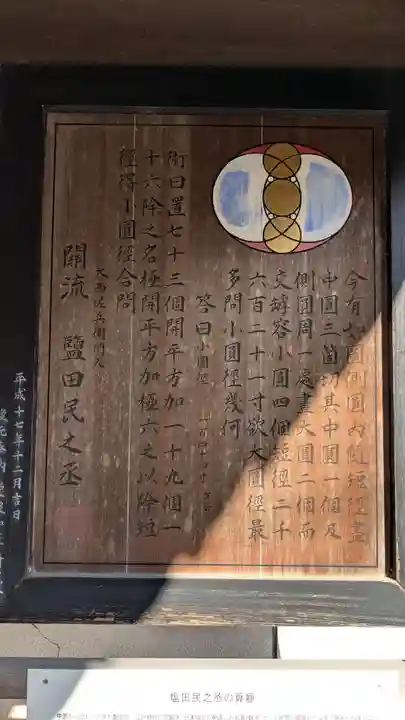 今有如圖側圓内
中圓三箇切其中圓一個及
側圓周一處畫大圓二個而
交罅容小圓四個短徑二千
六百二十一寸欲大圓徑最
多問小圓徑幾何
答曰小圓徑
術曰置七十三個開平方加一十九個一
十六除之名極開平方加極六之以除短
徑得小圓徑合問
大西佐兵衛門人
關流 鹽田民之丞
平成十七年十二月吉日
塩田民之丞の算額